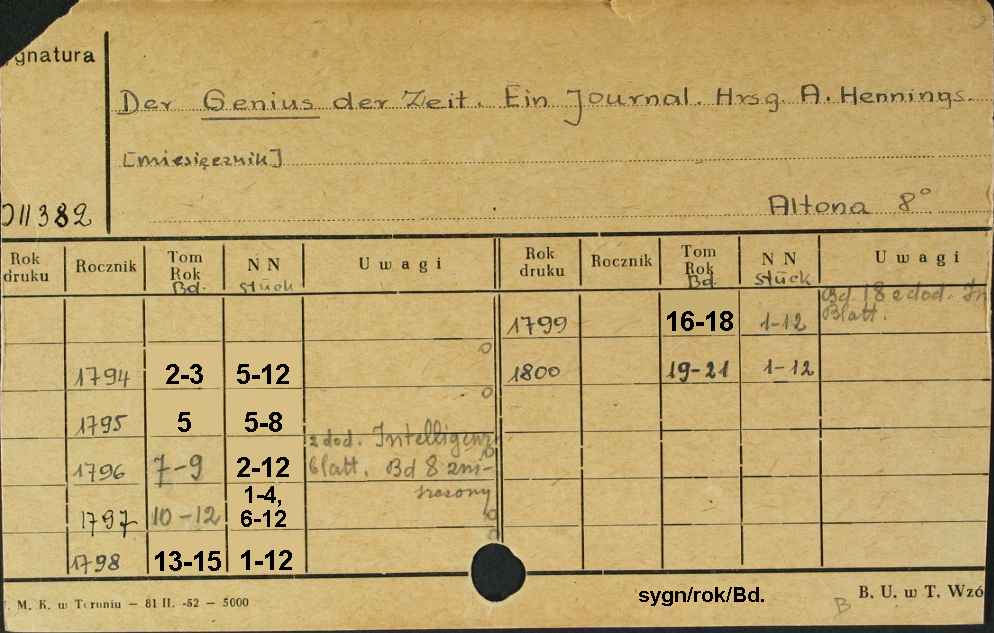 ygnatura
Der Genius der Zeit. Ein Journal. Hrsg. A. Hennings.
[miesięcznik]
011382
Altona 8°
Rok druku Rocznik Tom Rok Bd. N N stück Uwagi Rok druku Rocznik Tom Rok Bd. N N stück Uwagi
1799 16-18 1-12 Bd 18 z dod. In
Blatt.
1794 2-3 5-12 1800 19-21 1-12
1795 5 5-8
z dod. Intelligenz
1796 7-9 2-12 blatt. Bd 8 zni-
szczony
1797 10-12 1-4, 6-12
1798 13-15 1-12
. M. K. w Toruniu — 81 II. -52 — 5000
sygn/rok/Bd.
B
B. U. w T. Wzó